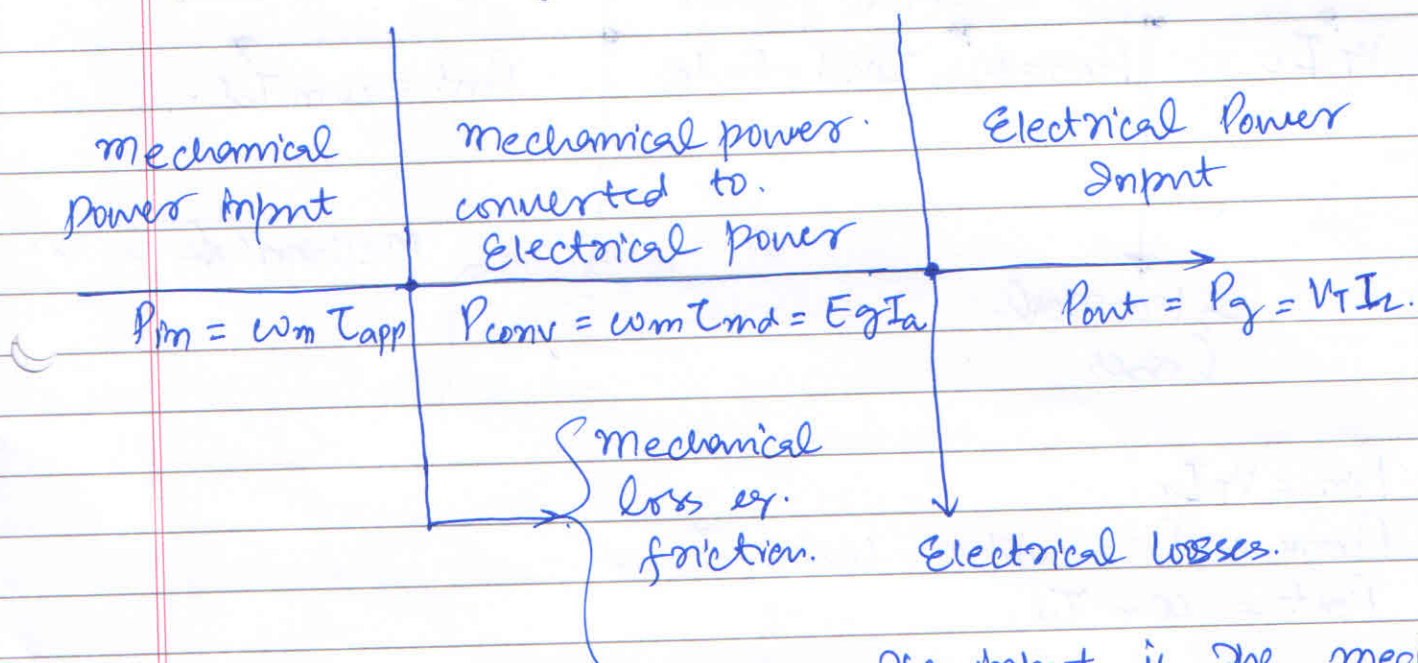 Mechanical
Power Input
Mechanical power.
converted to.
Electrical power
Electrical Power
Input
Pin = ωm τapp
Pconv = ωm τmd = EgIa
Pout = Pg = VTIL.
Mechanical
loss eg.
friction.
Electrical losses.
the mec